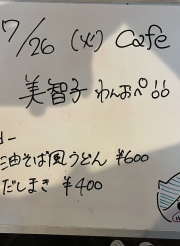 7/26 (火) Cafe
美智子 わんおぺ
ュー
油そば風うどん ¥600
だしまき ¥400